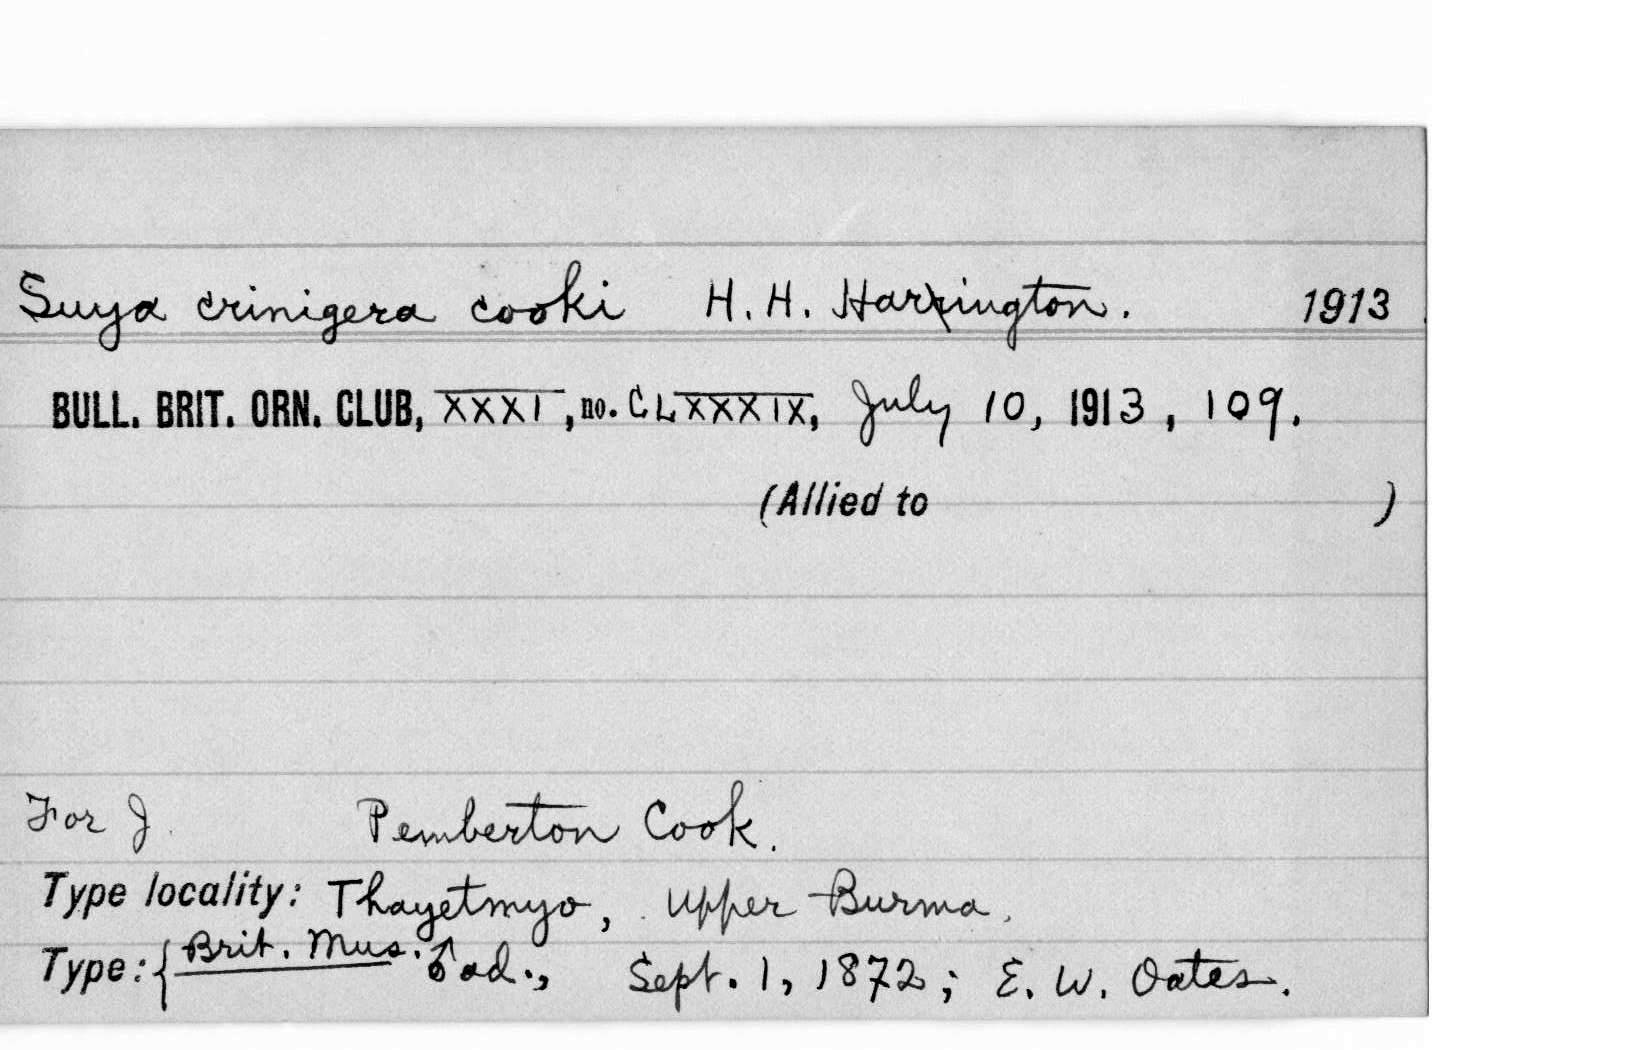 Suya crinigera cooki H. H. Harrington. 1913
BULL. BRIT. ORN. CLUB, XXXI, no. CLXXXIX, July 10, 1913, 109.
(Allied to )
For J. Pemberton Cook.
Type locality: Thayetmyo, Upper Burma.
Type: { Brit. Mus. ♂ ad., Sept. 1, 1872; E. W. Oates.